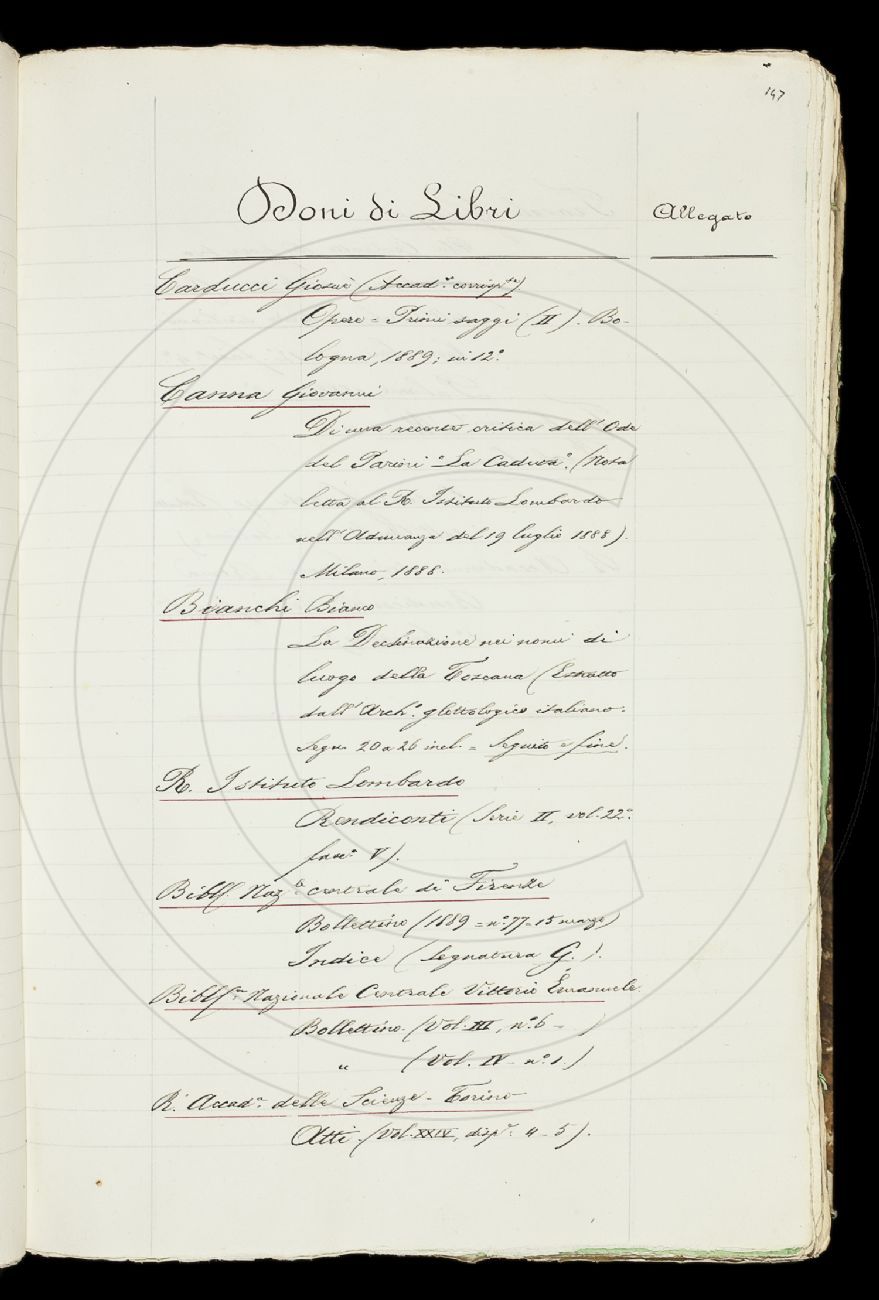 147
Doni di Libri
Allegato
Carducci Giosuè (Accad.º corrisp.te)
Opere = Primi saggi (II). Bo-
logna, 1889; in 12º.
Canna Giovanni
Di una recente critica dell'Ode
del Parini "La Caduta". (Nota
letta al R. Istituto Lombardo
nell'Adunanza del 19 luglio 1888).
Milano, 1888.
Bianchi Bianco
La Declinazione nei nomi di
luogo della Toscana (Estratto
dall'Arch.º glottologico italiano.
Segn. 20 a 26 incl. = Seguito e fine.
R. Istituto Lombardo
Rendiconti (Serie II, vol. 22º.
fasc.º V).
Bibl. Naz.le centrale di Firenze
Bollettino (1889 = nº 77 = 15 marzo)
Indice (Segnatura G.).
Nazionale Centrale Vittorio Emanuele
Bollettino. (Vol. III, nº 6 - )
" (Vol. IV - nº 1)
R. Accad.ª delle Scienze - Torino
Atti. (Vol. XXIV, disp.e 4-5).